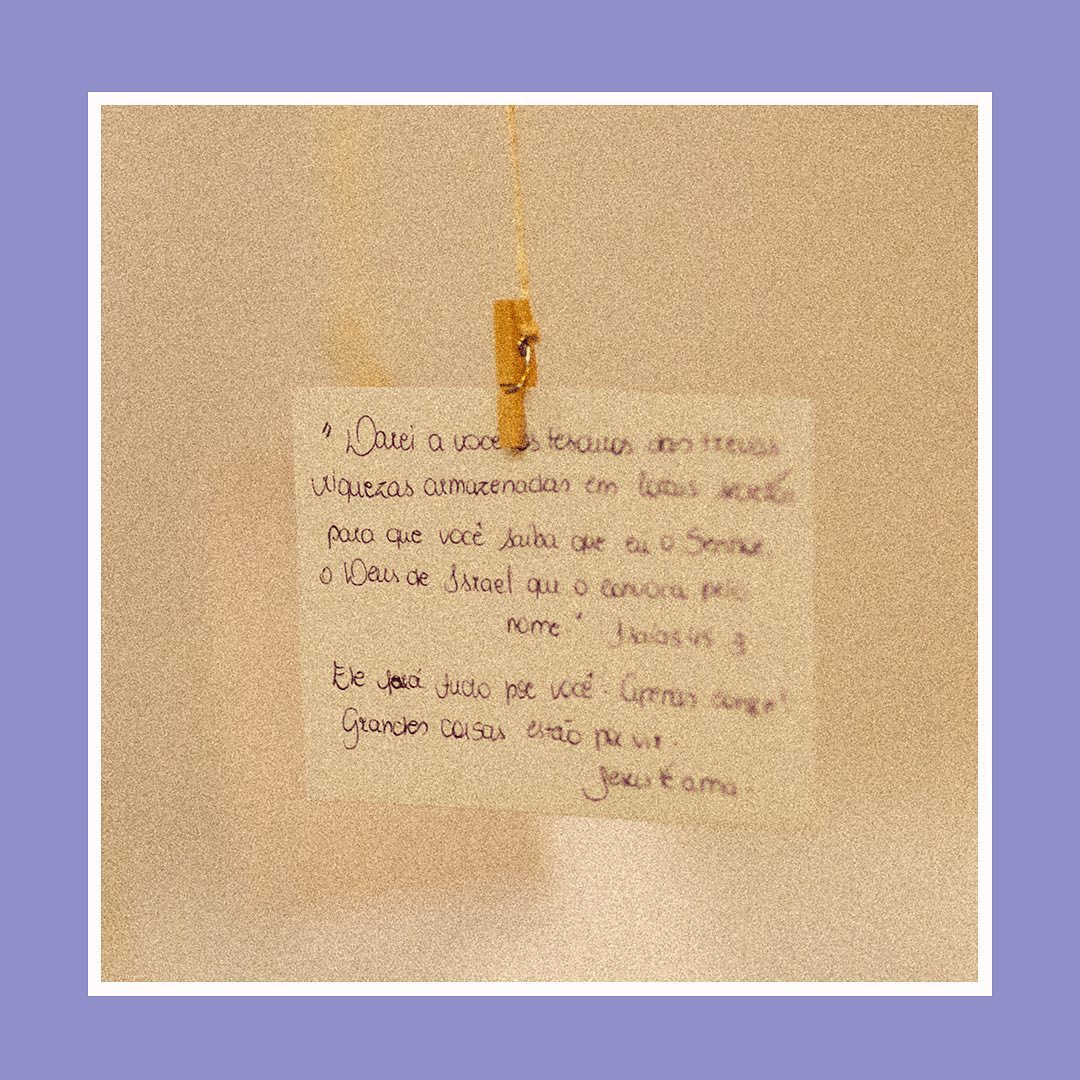 "Darei a você os tesouros das trevas
riquezas armazenadas em locais secretos
para que você saiba que eu o Senhor
o Deus de Israel que o convoca pelo
nome" Isaías 45 3
Ele fará tudo por você. Apenas
Grandes coisas estão por vir.
Jesus te ama.